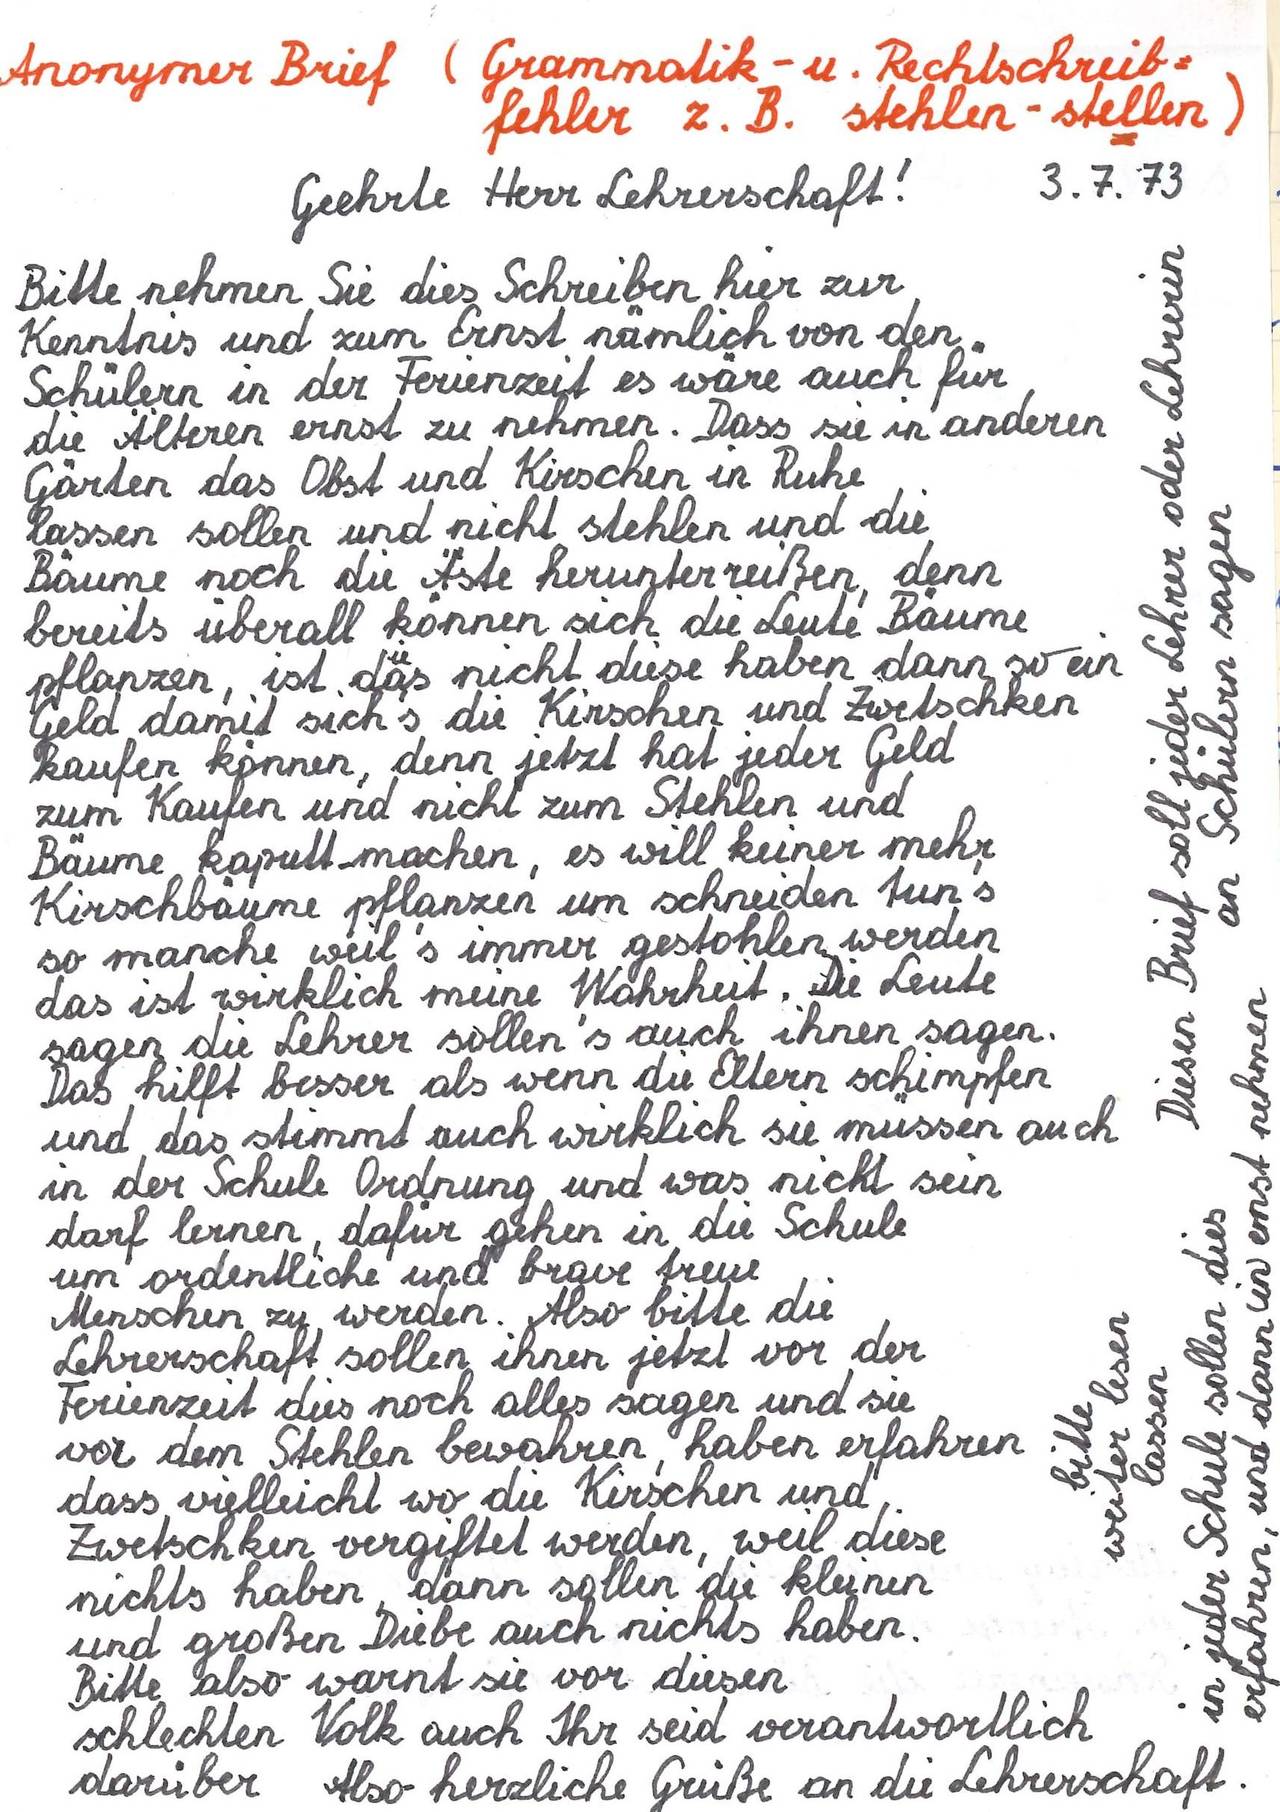 Anonymer Brief (Grammatik- u. Rechtschreib=
fehler z. B. stehlen - stellen)
Geehrte Herr Lehrerschaft! 3.7.73
Bitte nehmen Sie dies Schreiben hier zur
Kenntnis und zum Ernst nämlich von den
Schülern in der Ferienzeit es wäre auch für
die Älteren ernst zu nehmen. Dass sie in anderen
Gärten das Obst und Kirschen in Ruhe
lassen sollen und nicht stehlen und die
Bäume noch die Äste herunterreißen, denn
bereits überall können sich die Leute Bäume
pflanzen, ist das nicht diese haben dann so ein
Geld damit sich's die Kirschen und Zwetschken
kaufen können, denn jetzt hat jeder Geld
zum Kaufen und nicht zum Stehlen und
Bäume kaputt machen, es will keiner mehr
Kirschbäume pflanzen um schneiden tun's
so manche weil's immer gestohlen werden
das ist wirklich meine Wahrheit. Die Leute
sagen die Lehrer sollen's auch ihnen sagen.
Das hilft besser als wenn die Eltern schimpfen
und das stimmt auch wirklich sie müssen auch
in der Schule Ordnung und was nicht sein
darf lernen, dafür gehen in die Schule
um ordentliche und brave treue
Menschen zu werden. Also bitte die
Lehrerschaft sollen ihnen jetzt vor der
Ferienzeit dies noch alles sagen und sie
vor dem Stehlen bewahren, haben erfahren
dass vielleicht wo die Kirschen und
Zwetschken vergiftet werden, weil diese
nichts haben, dann sollen die kleinen
und großen Diebe auch nichts haben.
Bitte also warnt sie vor diesen
schlechten Volk auch Ihr seid verantwortlich
darüber Also herzliche Grüße an die Lehrerschaft.
bitte
weiter lesen
lassen
Diesen Brief soll jeder Lehrer oder Lehrerin
an Schülern sagen
in jeder Schule sollen dies
erfahren, und dann in ernst nehmen